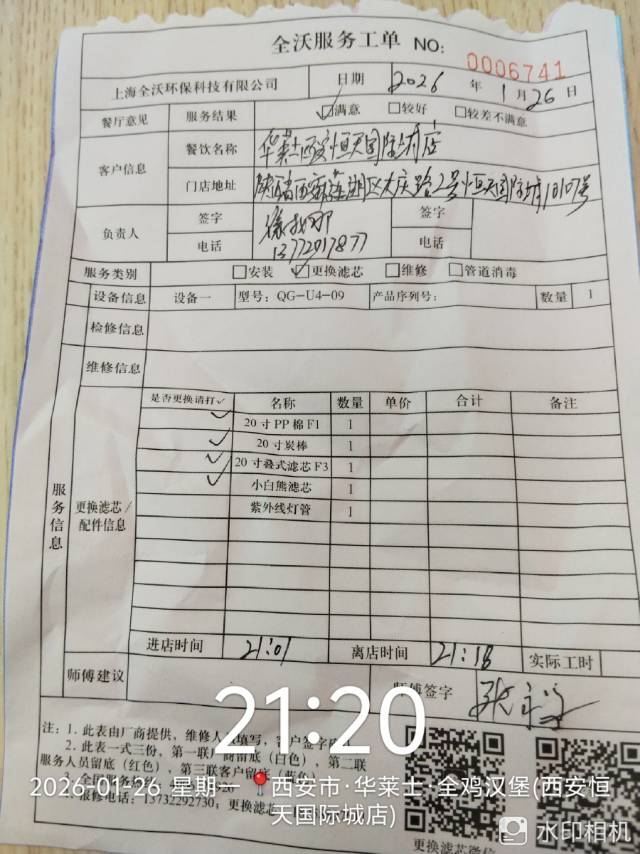 全沃服务工单 NO: 0006741
上海全沃环保科技有限公司 日期 2026 年 1 月 26 日
餐厅意见 服务结果 ☑满意 □较好 □较差不满意
客户信息 餐饮名称 华莱士西安恒天国际城店
门店地址 陕西省西安莲湖区大庆路2号恒天国际城10107号
负责人 签字 签字
电话 13772017877 电话
服务类别 □安装 ☑更换滤芯 □维修 □管道消毒
设备信息 设备一 型号: QG-U4-09 产品序列号: 数量 1
检修信息
维修信息
服务信息 更换滤芯/配件信息
是否更换请打✓ 名称 数量 单价 合计 备注
✓ 20寸PP棉F1 1
✓ 20寸炭棒 1
✓ 20寸叠式滤芯F3 1
✓ 小白熊滤芯 1
紫外线灯管 1
进店时间 21:01 离店时间 21:18 实际工时
师傅建议 师傅签字
21:20
注: 1. 此表由厂商提供, 维修人 填写, 客户签字
2. 此表一式三份, 第一联厂商留底(白色), 第二联
服务人员留底(红色), 第三联客户留底(蓝色)
2026-01-26 星期一 西安市·华莱士 全鸡汉堡(西安恒天国际城店)
报修电话: 13732292730; 更换滤芯
更换滤芯微信
水印相机